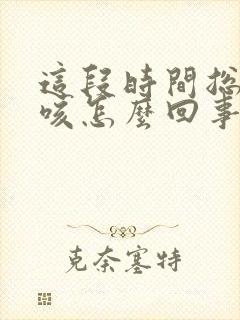 這段時間總
咳怎麼回事
克奈塞特